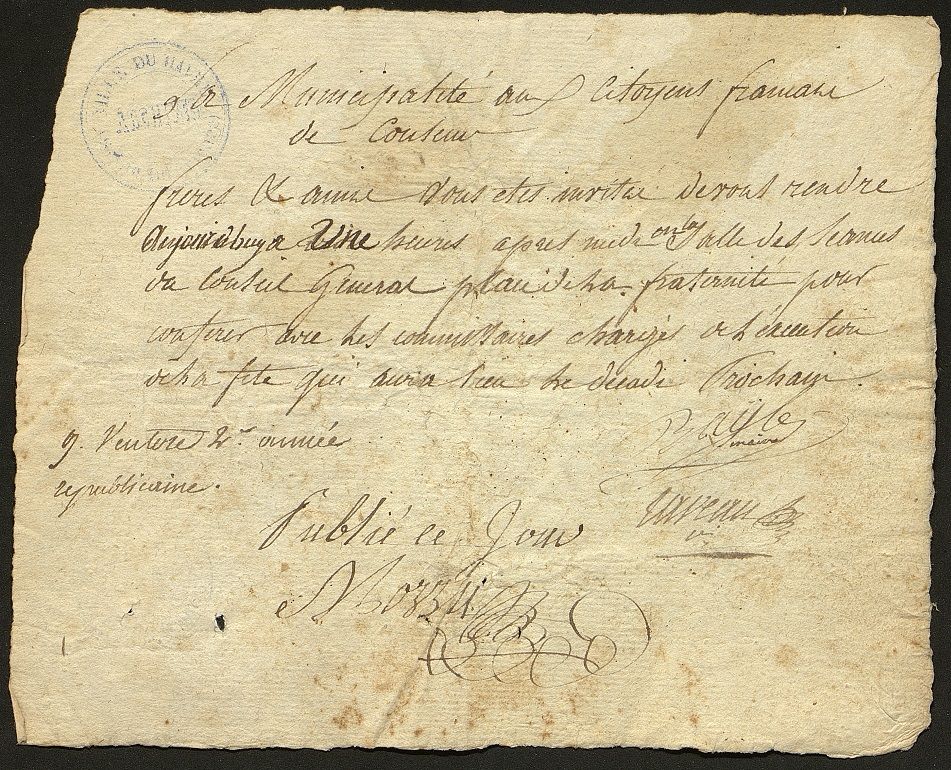 VILLE DU HAVRE
ARCHIVES
La Municipalité aux Citoyens francais
de Couleur
freres & amis Vous etes invités devous rendre
Aujourdhuy a Une heures apres midi en la Salle des Seances
du Conseil General place de la fraternité pour
conferer avec les commissaires chargés de l'execution
de la fete qui aura lieu le decadi Prochain.
maire
9 Ventose 2e année
republicaine.
Publié ce Jour